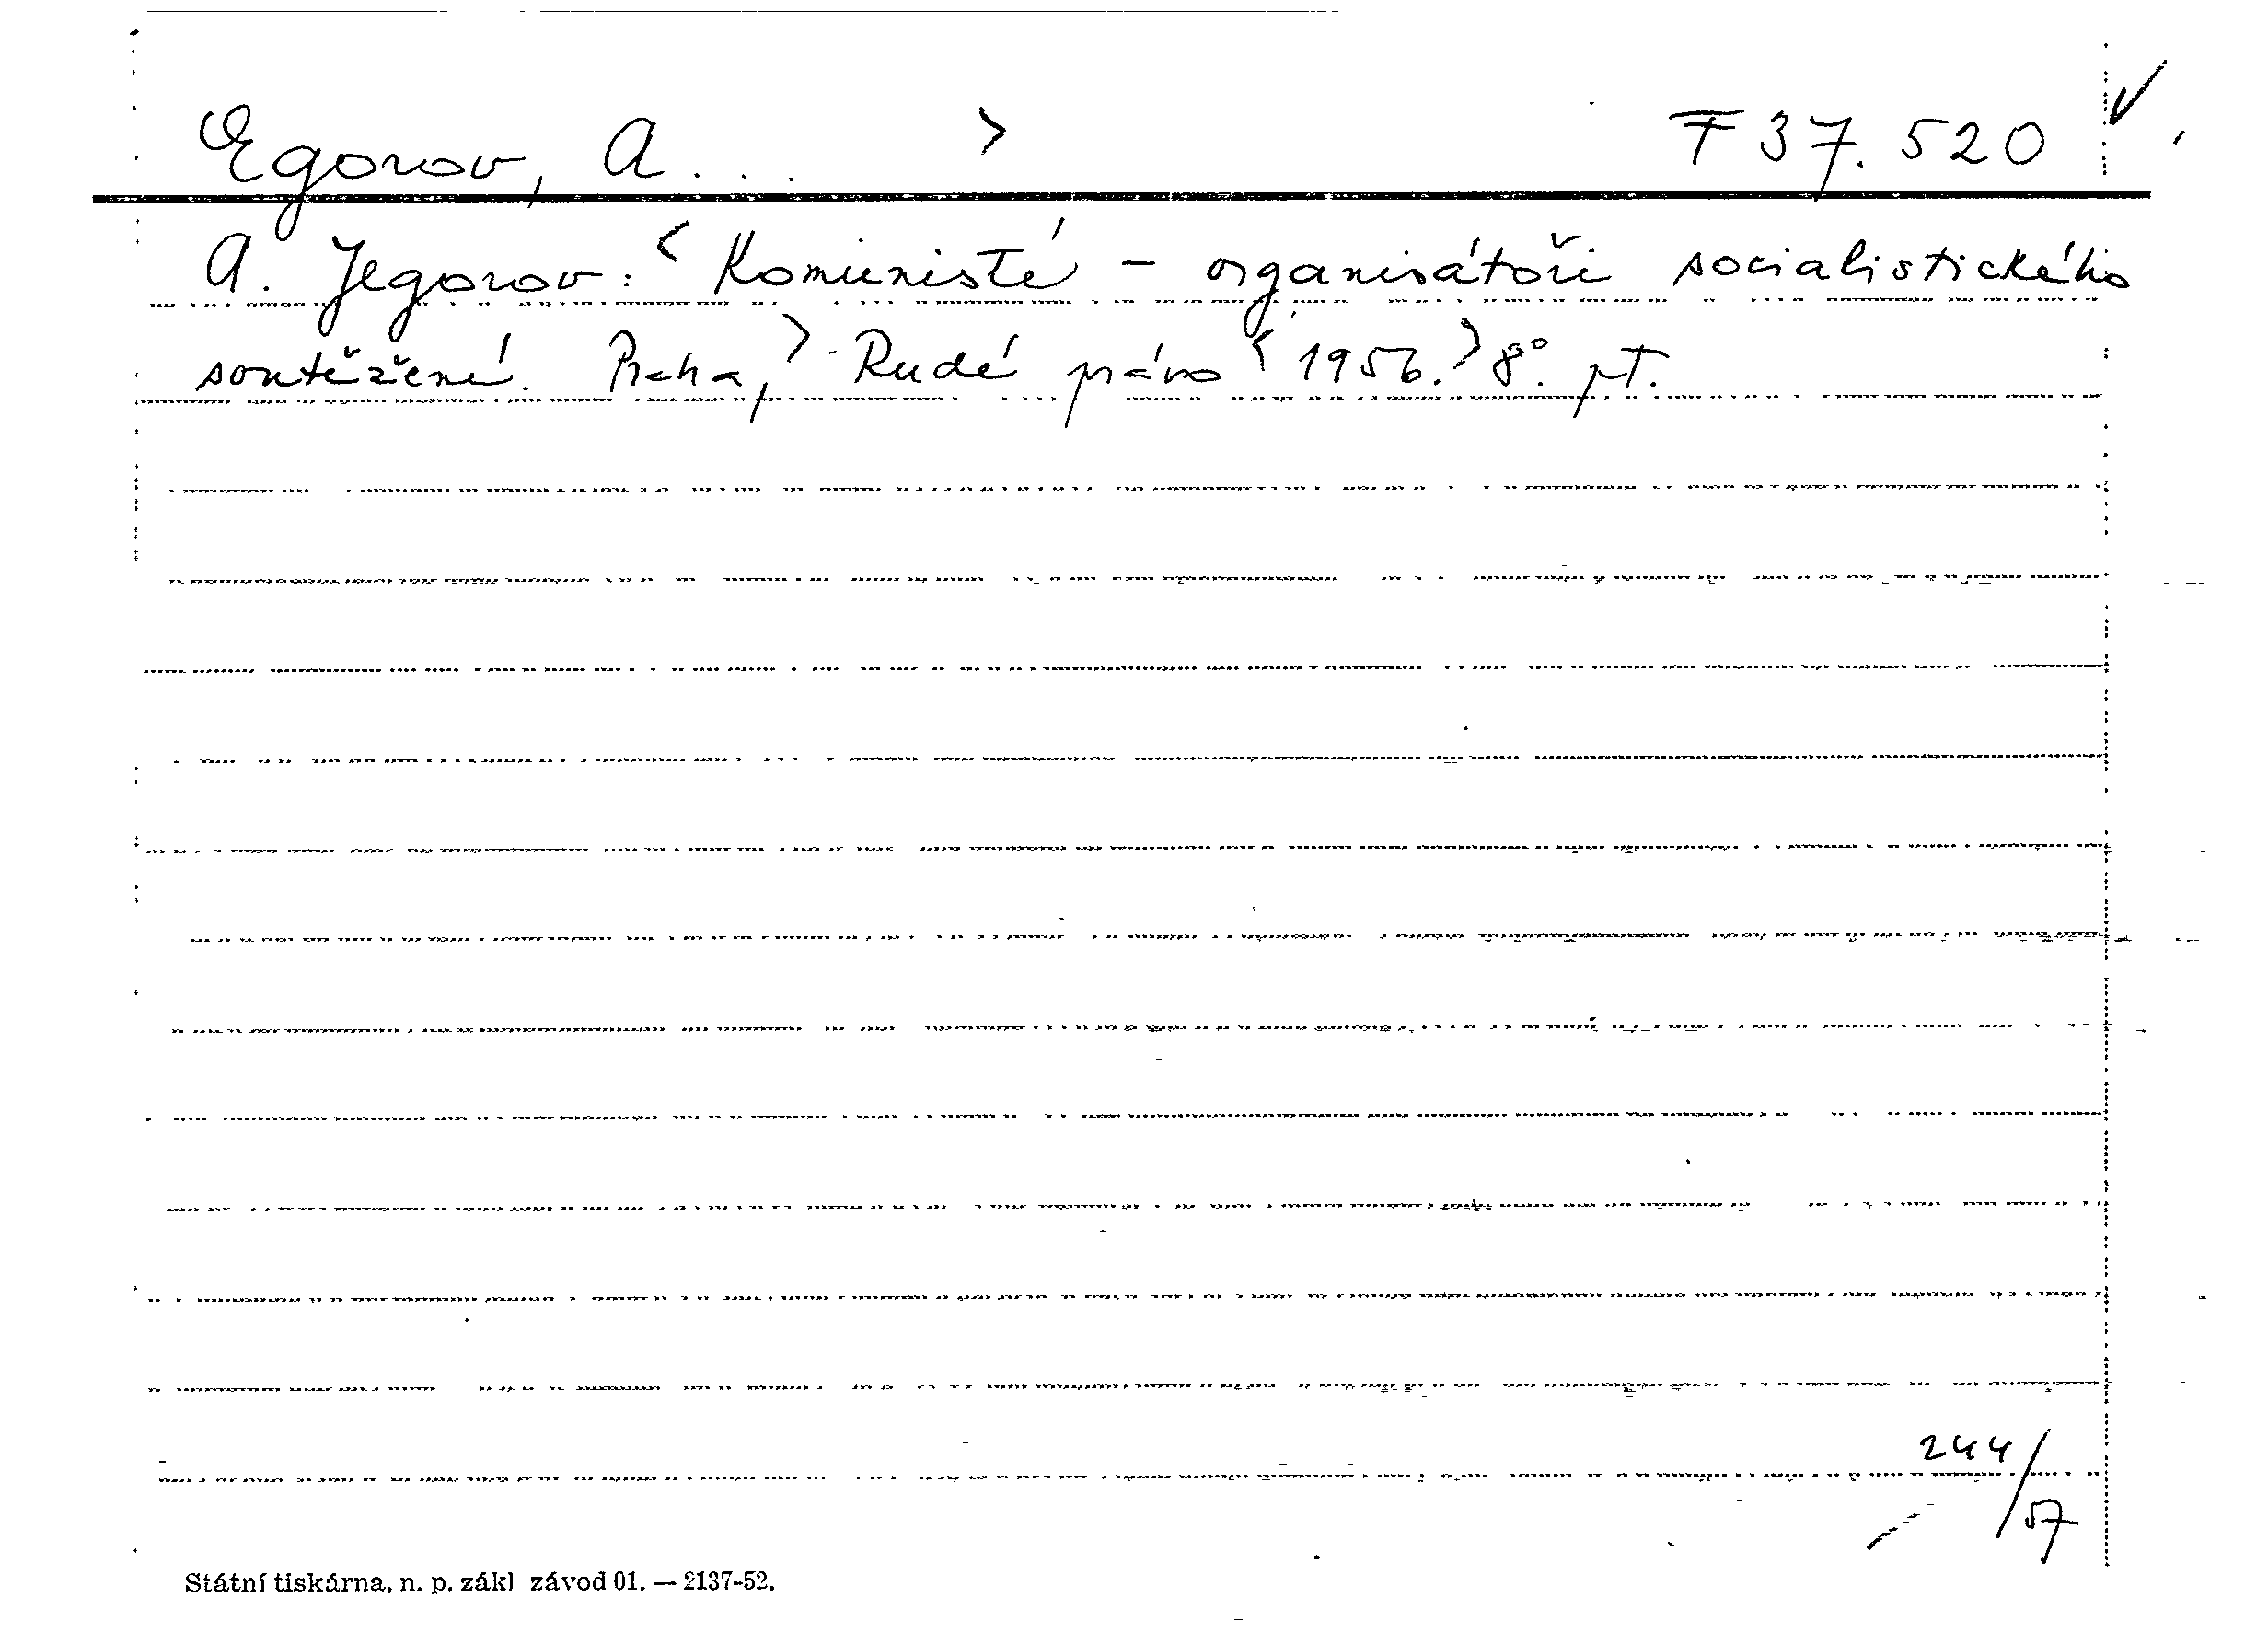 Egorov, A... > F 37.520 ✓
A. Jegorov: < Komunisté – organisátoři socialistického
soutěžení. Praha, > Rudé právo < 1956. > 8°. pT.
244/57
Státní tiskárna, n. p. zákl závod 01. — 2137-52.